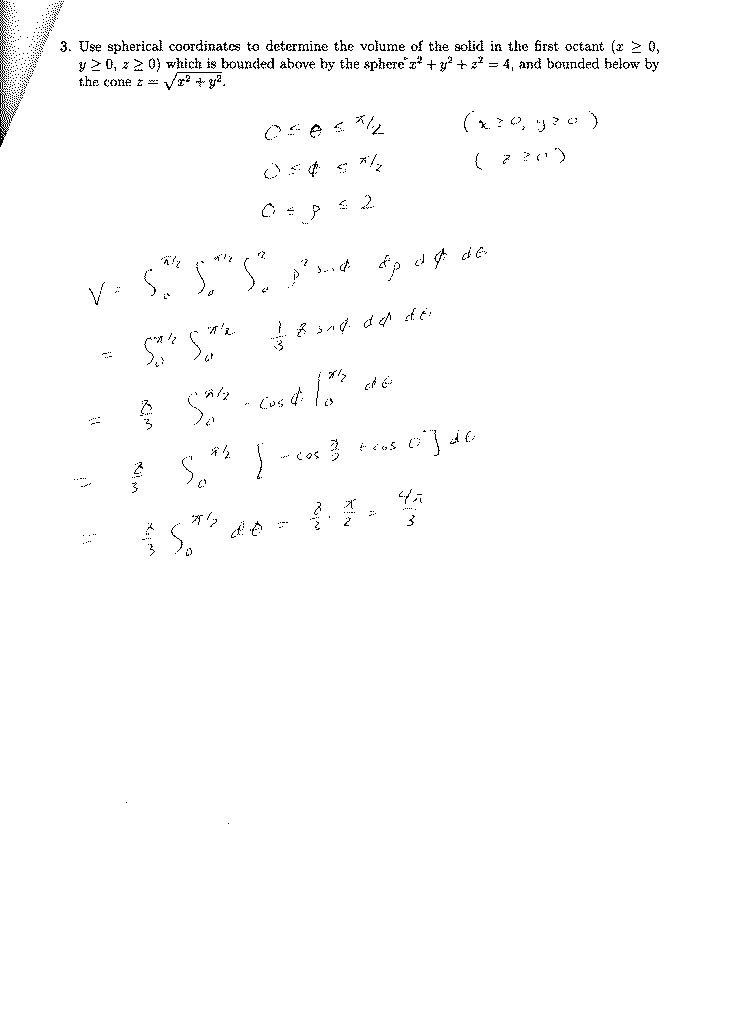 3. Use spherical coordinates to determine the volume of the solid in the first octant (x ≥ 0,
y ≥ 0, z ≥ 0) which is bounded above by the sphere x² + y² + z² = 4, and bounded below by
the cone z = √(x² + y²).
0 ≤ θ ≤ π/2 (x ≥ 0, y ≥ 0)
0 ≤ ϕ ≤ π/2 (z ≥ 0)
0 ≤ ρ ≤ 2
V = ∫₀^π/2 ∫₀^π/2 ∫₀^2 ρ² sin ϕ dρ dϕ dθ
= ∫₀^π/2 ∫₀^π/2 1/3 8 sin ϕ dϕ dθ
= 8/3 ∫₀^π/2 - cos ϕ |₀^π/2 dθ
= 8/3 ∫₀^π/2 [ - cos π/2 + cos 0 ] dθ
= 8/3 ∫₀^π/2 dθ = 8/3 · π/2 = 4π/3